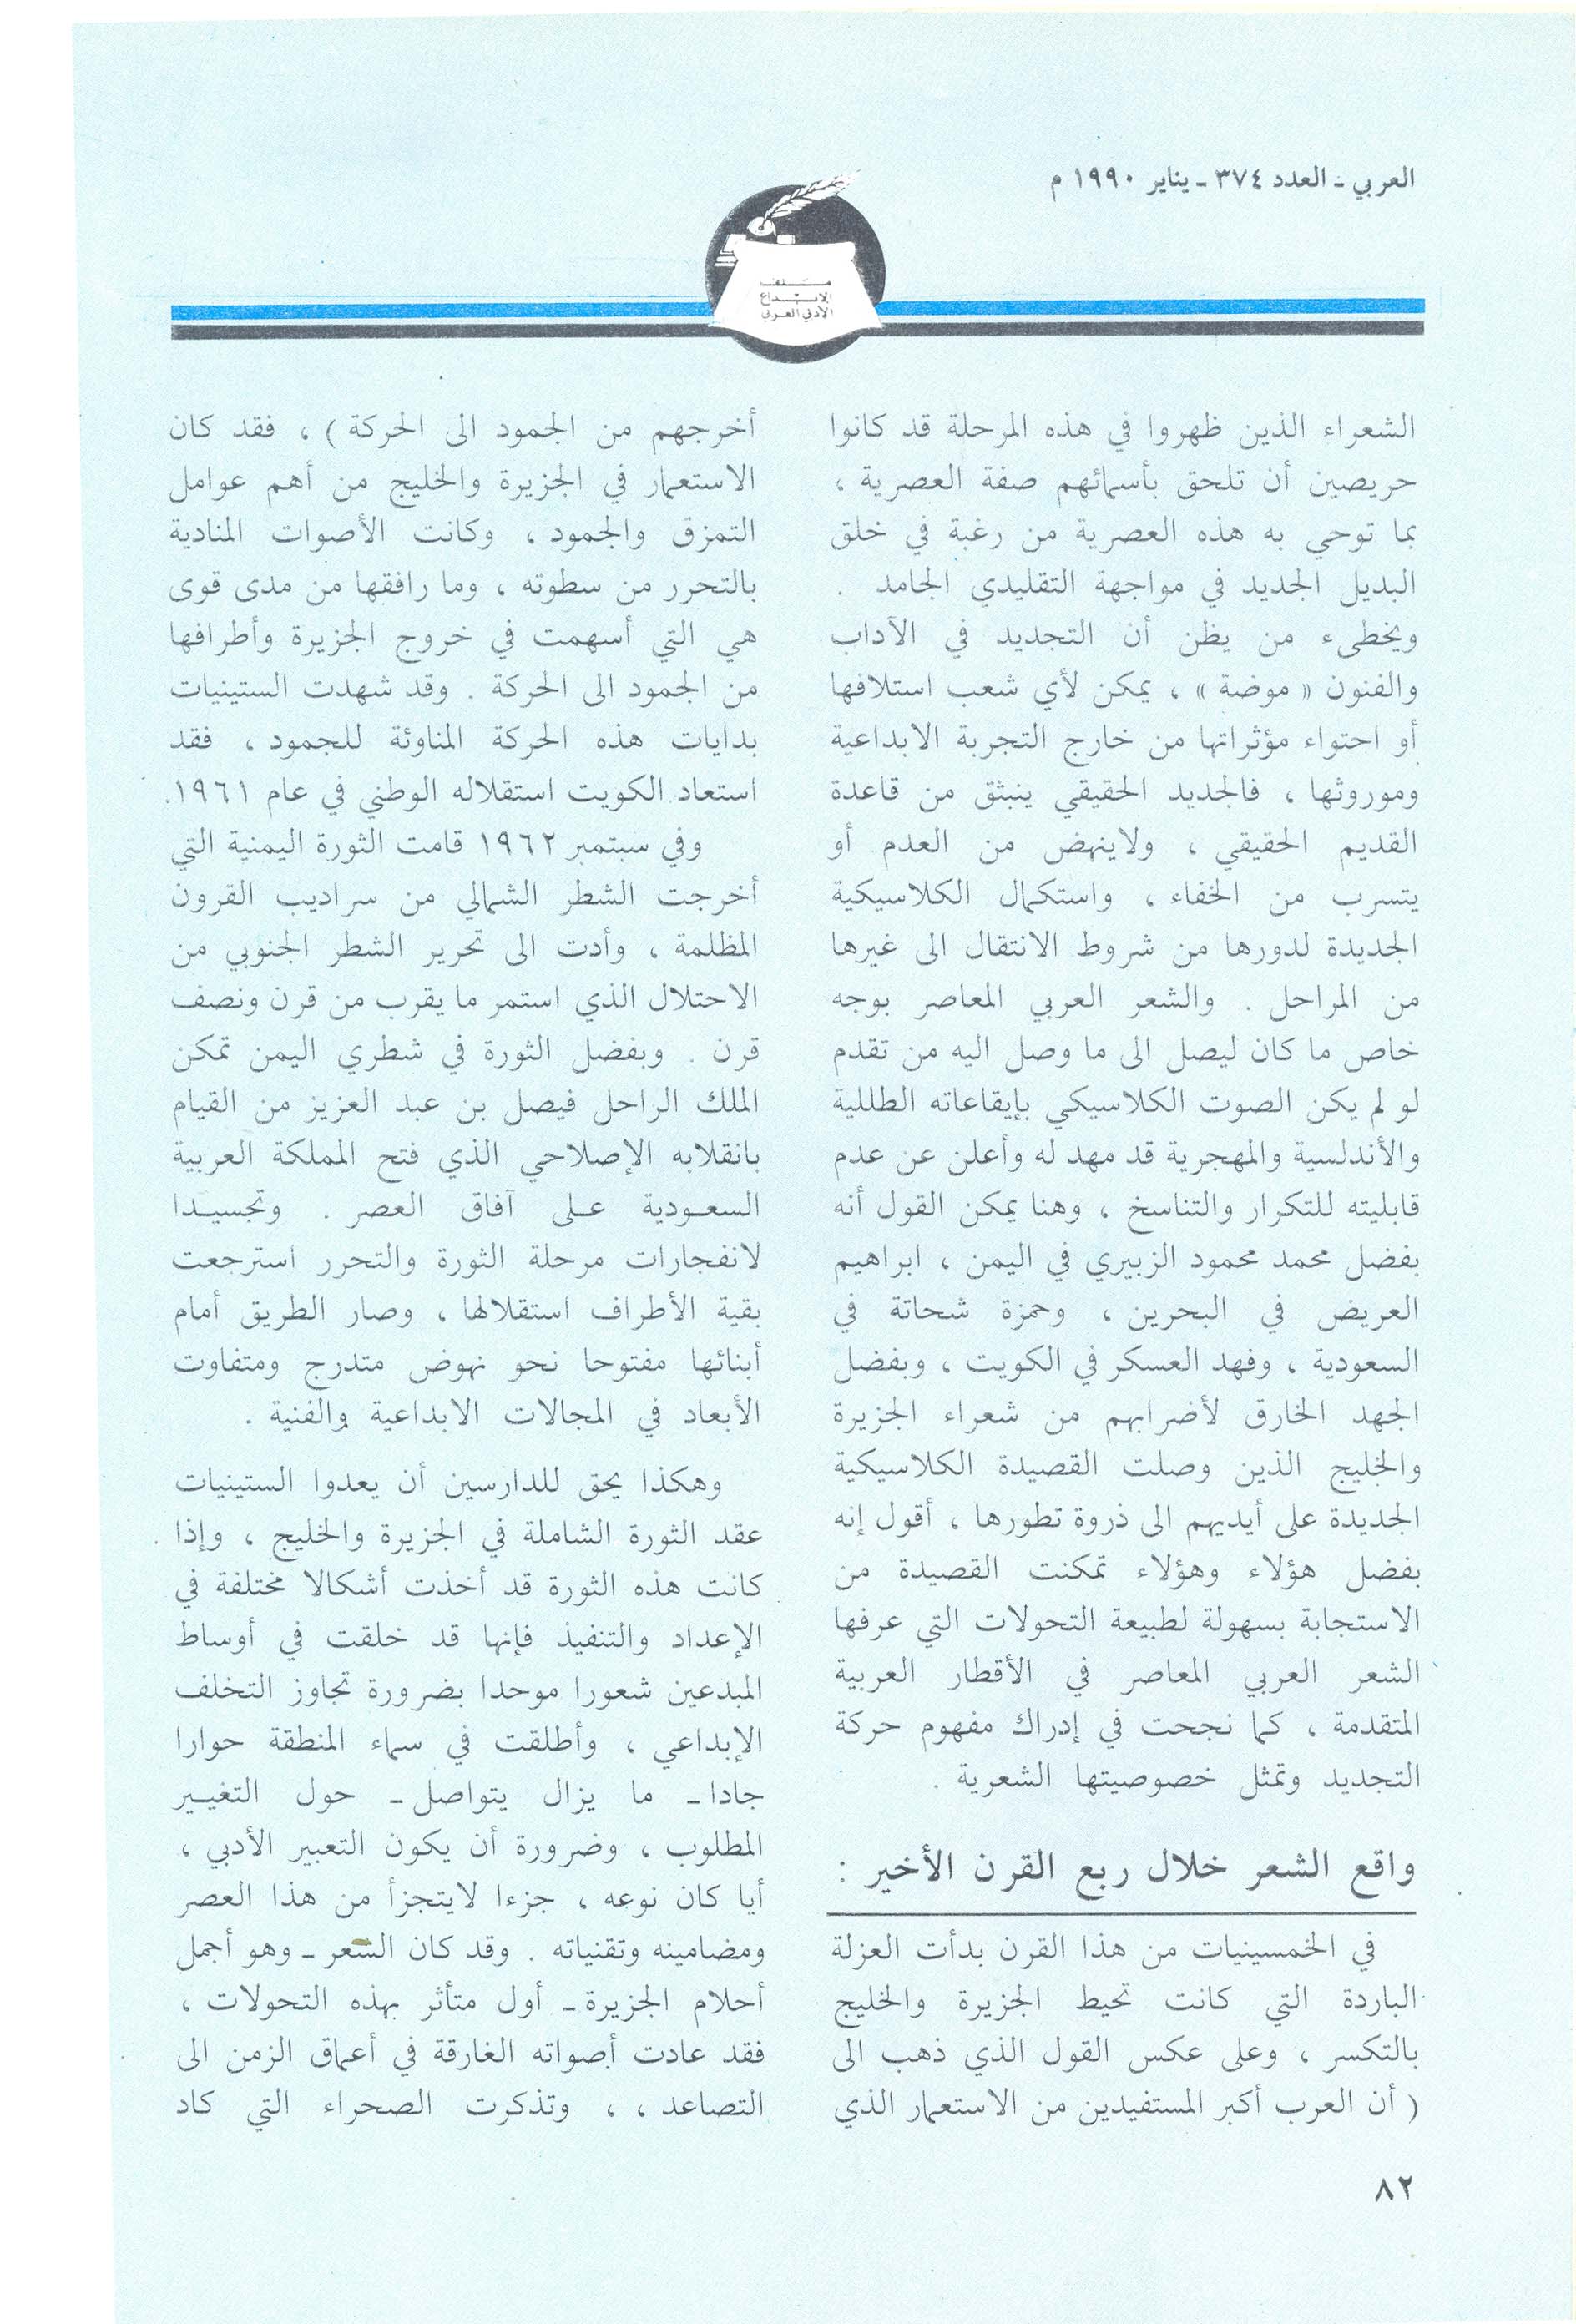 العربي - العدد ٣٧٤ - يناير ١٩٩٠ م
ملف
الإبداع
الأدبي العربي
الشعراء الذين ظهروا في هذه المرحلة قد كانوا
حريصين أن تلحق بأسمائهم صفة العصرية ،
بما توحي به هذه العصرية من رغبة في خلق
البديل الجديد في مواجهة التقليدي الجامد .
ويخطىء من يظن أن التجديد في الآداب
والفنون « موضة » ، يمكن لأي شعب استلافها
أو احتواء مؤثراتها من خارج التجربة الابداعية
وموروثها ، فالجديد الحقيقي ينبثق من قاعدة
القديم الحقيقي ، ولاينهض من العدم أو
يتسرب من الخفاء ، واستكمال الكلاسيكية
الجديدة لدورها من شروط الانتقال الى غيرها
من المراحل . والشعر العربي المعاصر بوجه
خاص ما كان ليصل الى ما وصل اليه من تقدم
لو لم يكن الصوت الكلاسيكي بإيقاعاته الطللية
والأندلسية والمهجرية قد مهد له وأعلن عن عدم
قابليته للتكرار والتناسخ ، وهنا يمكن القول أنه
بفضل محمد محمود الزبيري في اليمن ، ابراهيم
العريض في البحرين ، وحمزة شحاتة في
السعودية ، وفهد العسكر في الكويت ، وبفضل
الجهد الخارق لأضرابهم من شعراء الجزيرة
والخليج الذين وصلت القصيدة الكلاسيكية
الجديدة على أيديهم الى ذروة تطورها ، أقول إنه
بفضل هؤلاء وهؤلاء تمكنت القصيدة من
الاستجابة بسهولة لطبيعة التحولات التي عرفها
الشعر العربي المعاصر في الأقطار العربية
المتقدمة ، كما نجحت في إدراك مفهوم حركة
التجديد وتمثل خصوصيتها الشعرية .
واقع الشعر خلال ربع القرن الأخير :
في الخمسينيات من هذا القرن بدأت العزلة
الباردة التي كانت تحيط الجزيرة والخليج
بالتكسر ، وعلى عكس القول الذي ذهب الى
( أن العرب أكبر المستفيدين من الاستعمار الذي
أخرجهم من الجمود الى الحركة ) ، فقد كان
الاستعمار في الجزيرة والخليج من أهم عوامل
التمزق والجمود ، وكانت الأصوات المنادية
بالتحرر من سطوته ، وما رافقها من مدى قوى
هي التي أسهمت في خروج الجزيرة وأطرافها
من الجمود الى الحركة . وقد شهدت الستينيات
بدايات هذه الحركة المناوئة للجمود ، فقد
استعاد الكويت استقلاله الوطني في عام ١٩٦١.
وفي سبتمبر ١٩٦٢ قامت الثورة اليمنية التي
أخرجت الشطر الشمالي من سراديب القرون
المظلمة ، وأدت الى تحرير الشطر الجنوبي من
الاحتلال الذي استمر ما يقرب من قرن ونصف
قرن . وبفضل الثورة في شطري اليمن تمكن
الملك الراحل فيصل بن عبد العزيز من القيام
بانقلابه الإصلاحي الذي فتح المملكة العربية
السعودية على آفاق العصر . وتجسيدا
لانفجارات مرحلة الثورة والتحرر استرجعت
بقية الأطراف استقلالها ، وصار الطريق أمام
أبنائها مفتوحا نحو نهوض متدرج ومتفاوت
الأبعاد في المجالات الابداعية والفنية .
وهكذا يحق للدارسين أن يعدوا الستينيات
عقد الثورة الشاملة في الجزيرة والخليج ، وإذا
كانت هذه الثورة قد أخذت أشكالا مختلفة في
الإعداد والتنفيذ فإنها قد خلقت في أوساط
المبدعين شعورا موحدا بضرورة تجاوز التخلف
الإبداعي ، وأطلقت في سماء المنطقة حوارا
جادا - ما يزال يتواصل - حول التغيير
المطلوب ، وضرورة أن يكون التعبير الأدبي ،
أيا كان نوعه ، جزءا لايتجزأ من هذا العصر
ومضامينه وتقنياته . وقد كان الشعر - وهو أجمل
أحلام الجزيرة - أول متأثر بهذه التحولات ،
فقد عادت أصواته الغارقة في أعماق الزمن الى
التصاعد ، ، وتذكرت الصحراء التي كاد
٨٢